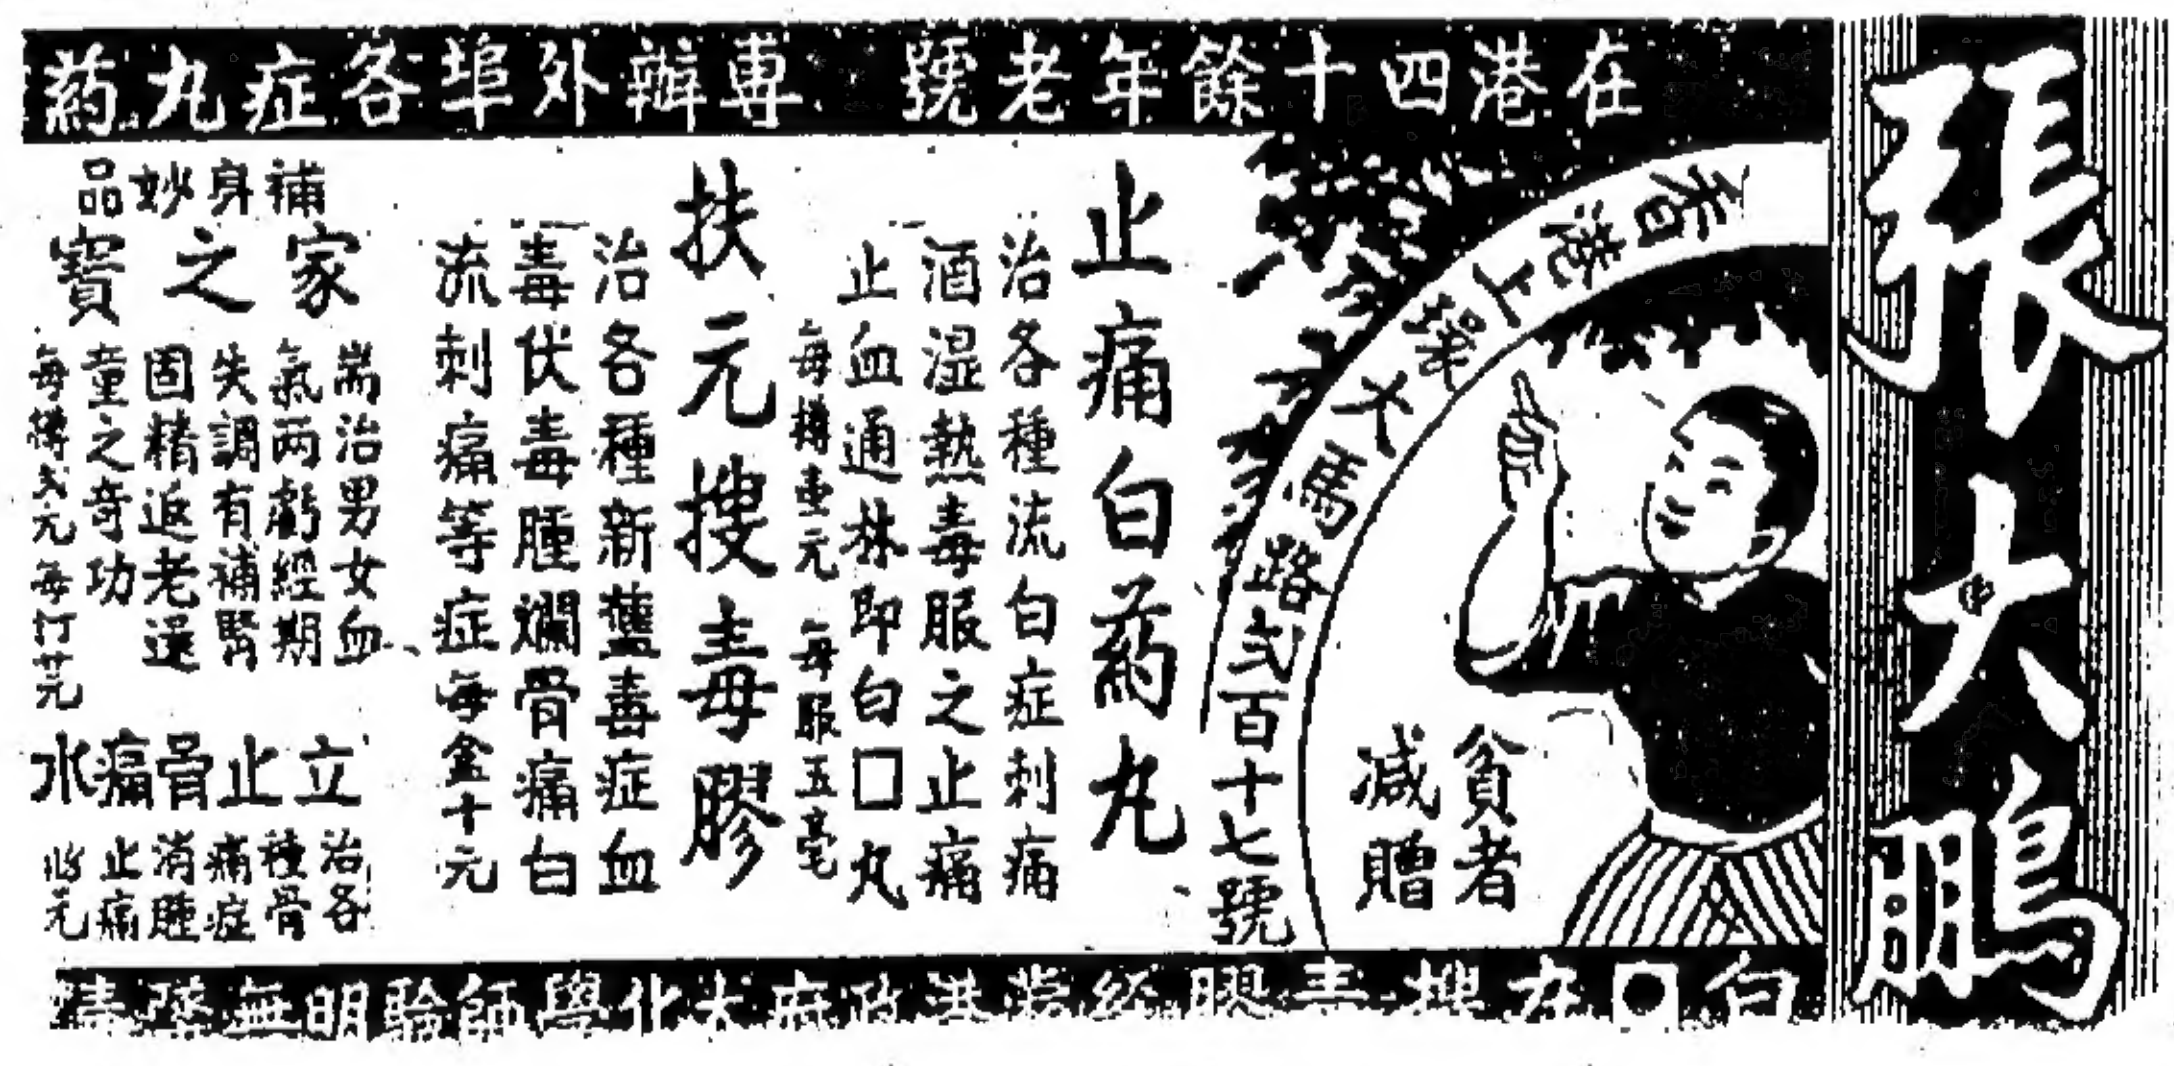 張大鵬
在港四十餘年老號　專辦外埠各症丸葯
香港上環大馬路弍百十七號
貧者
減贈
止痛白葯丸
治各種流白症刺痛
酒湿熱毒服之止痛
止血通淋即白□丸
每樽壹元　每服五毫
扶元搜毒膠
治各種新舊毒症血
毒伏毒腫爛骨痛白
流刺痛等症每盒十元
補身妙品
家之寶
耑治男女血
氣两虧經期
失調有補腎
固精返老還
童之奇功
每樽弍元每打廿元
立止骨痛水
治各
種骨
痛症
消腫
止痛
白 丸搜毒膠經蒙港政府大化學師驗明無